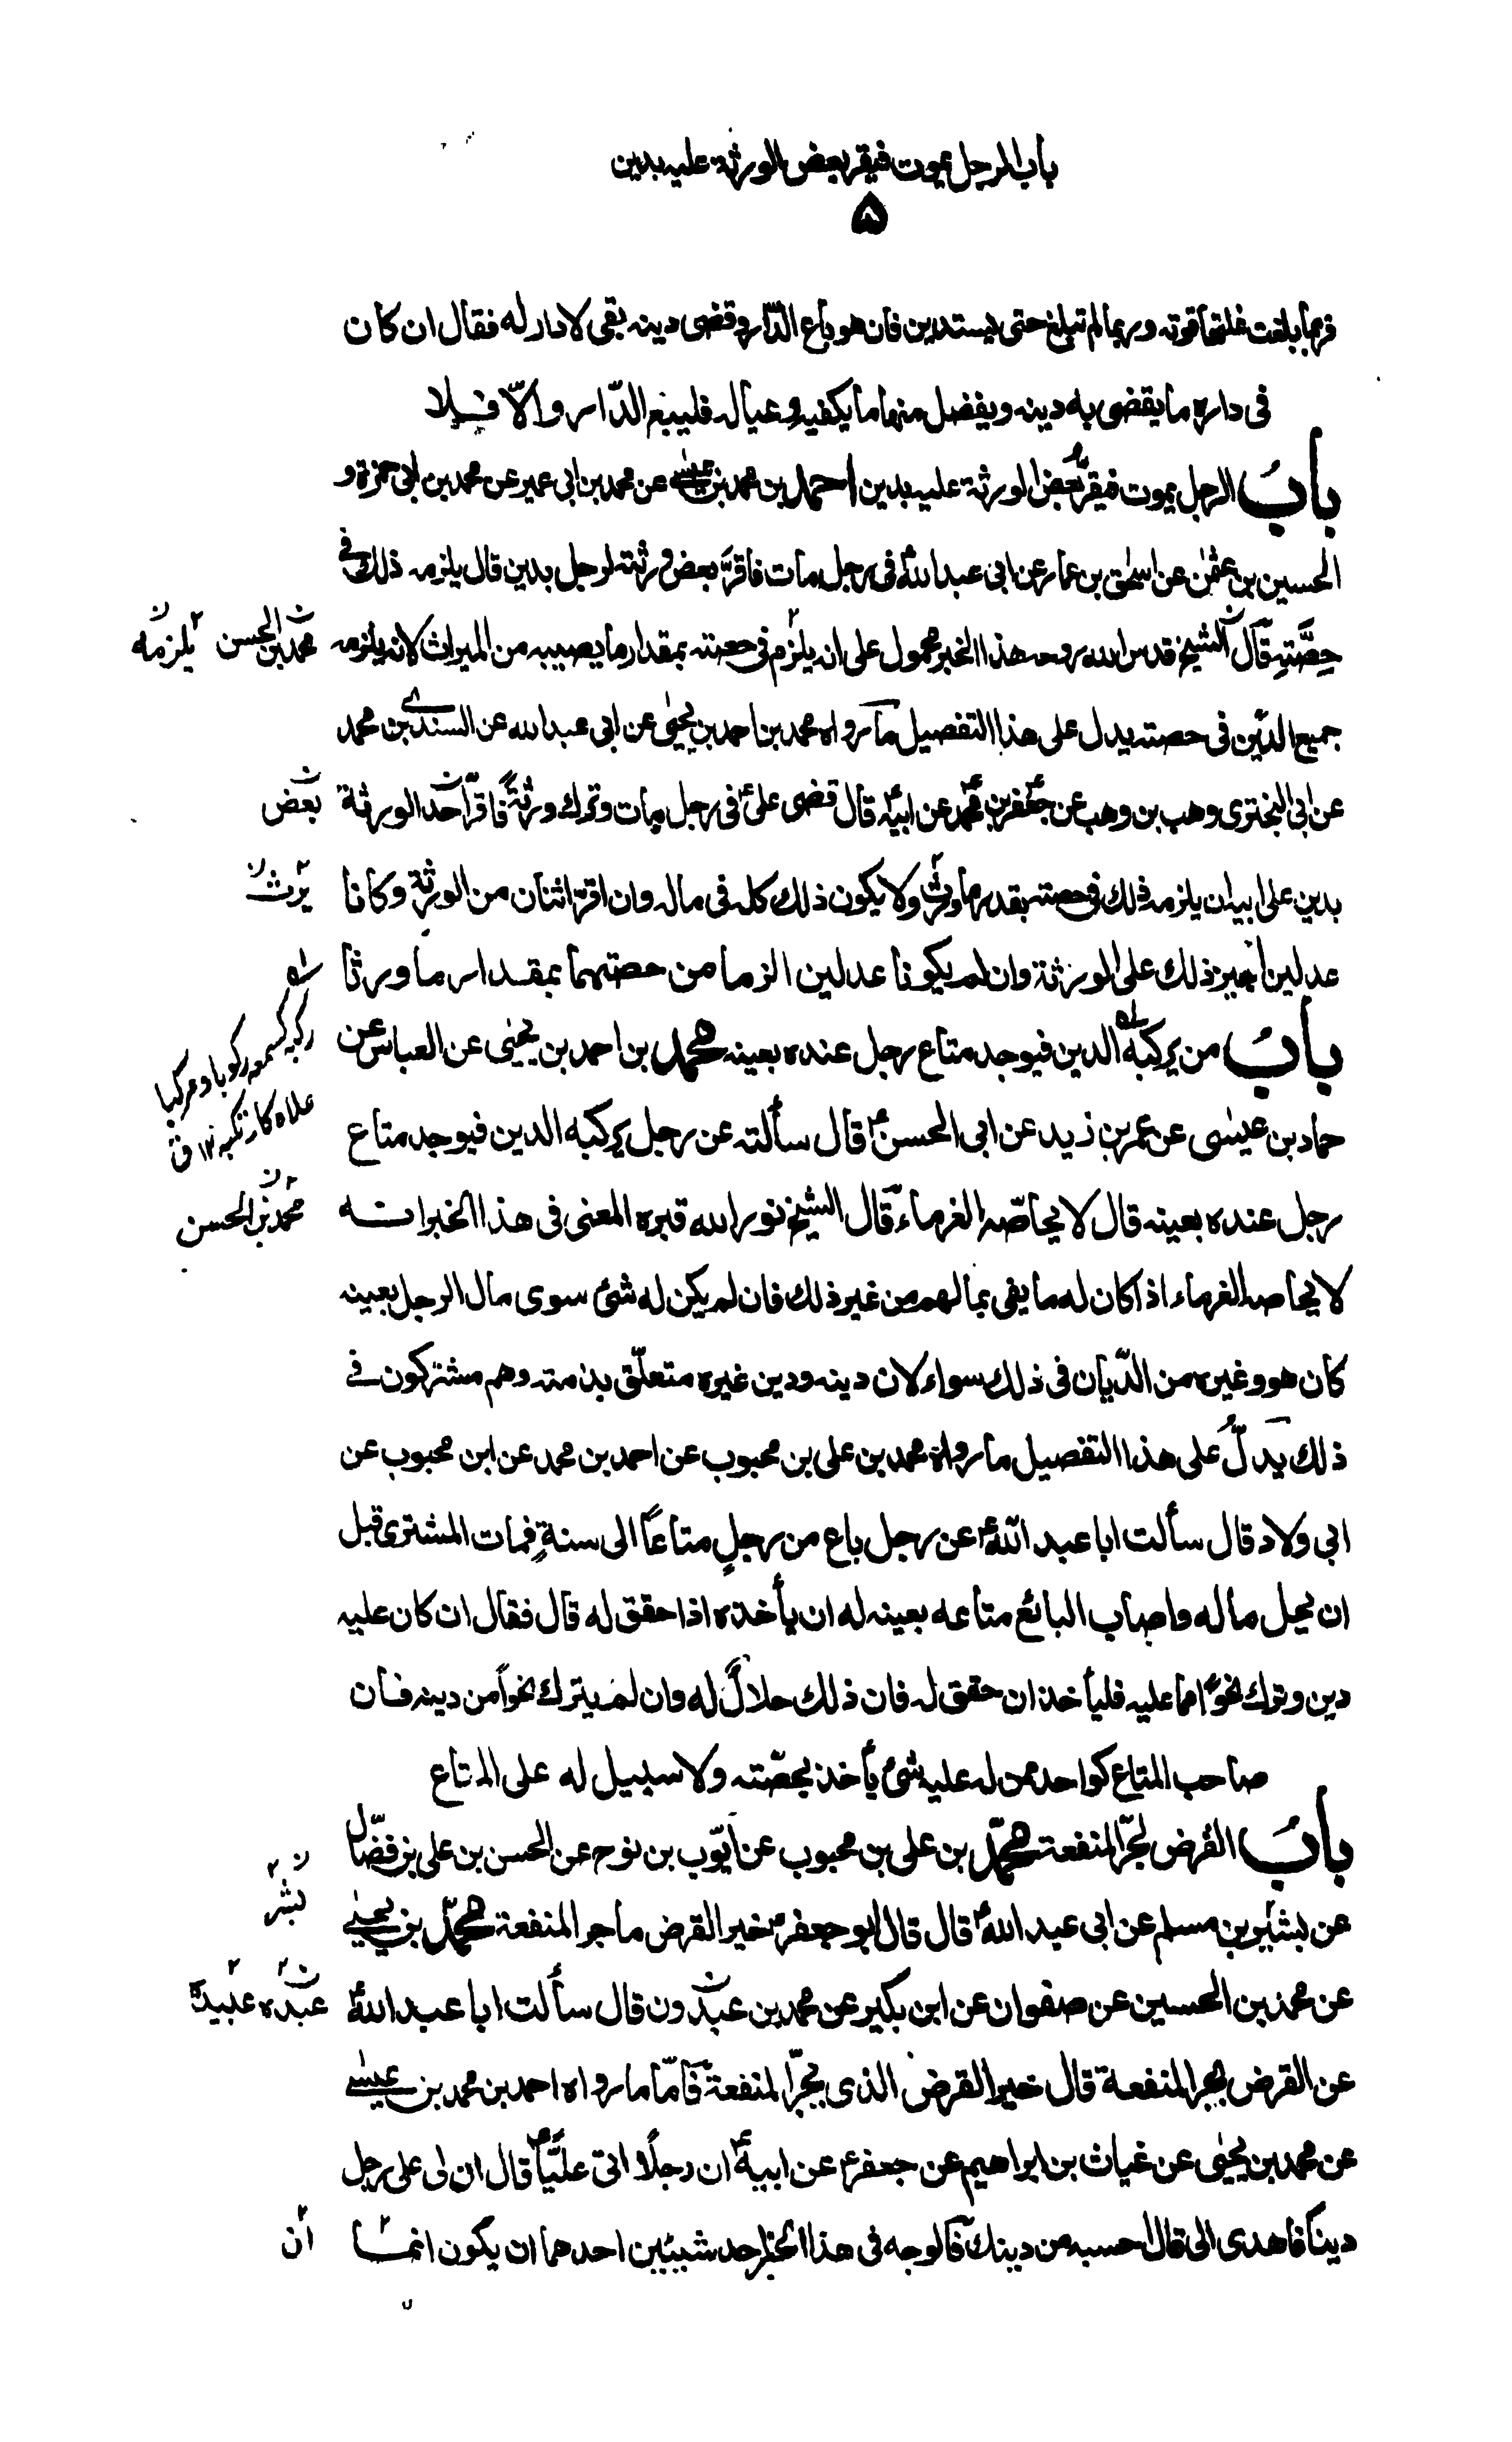 باب الرجل يموت فيقر بعض الورثة عليه بدين
۵
فربما بلغت غلتها قوته وربما لم تبلغ حتى يستدين فان هو باع الدّار وقضى دينه بقى لا دار له فقال ان كان
فى داره ما يقضى به دينه ويفضل منها ما يكفيه وعياله فليبع الدّار والّا فلا
بابُ الرجل يموت فيقرّ بعض الورثة عليه بدين احمد بن محمد بن عيسى عن محمد بن ابى عمير عن محمد بن ابى حمزة و
الحسين بن عثمٰن عن اسحٰق بن عمار عن ابى عبد اللهؑ فى رجل مات فاقرّ بعض ورثته لرجل بدين قال يلزمه ذلك فى
حِصَّتِهِ قال الشيخ قدس الله روحه هذا الخبر محمول على انه يلزم فى حصته بمقدار ما يصيبه من الميراث لانه يلزمه
محمد بن الحسن
يلزمه
جميع الدَّين فى حصته يدل على هذا التفصيل ما رواه محمد بن احمد بن يحيٰى عن ابى عبد الله عن السندى بن محمد
عن ابى البخترى وهب بن وهب عن جعفر بن محمد عن ابيهؑ قال قضى علىؑ فى رجل مات وترك ورثةً فاقرّ احد الورثة
بعض
بدين على ابيه ان يلزمه ذلك فى حصته بقدر ما ورث ولا يكون ذلك كله فى ماله وان اقرّ اثنان من الورثة وكانا
يرث
عدلين اجيز ذلك على الورثة وان لم يكونا عدلين الزما من حصتهما بمقدار ما ورثا
بابُ من يركبه الدين فيوجد متاع رجل عنده بعينه محمد بن احمد بن يحيٰى عن العباس عن
ركبه كسمعه ركوبا ومركبا
علاه كارتكبه ١٢ ق
حماد بن عيسٰى عن عمر بن زيد عن ابى الحسنؑ قال سألته عن رجل يركبه الدين فيوجد متاع
رجل عنده بعينه قال لا يحاصّه الغرماء قال الشيخ نور الله قبره المعنى فى هذا الخبر انه
محمد بن الحسن
لا يحاصه الغرماء اذا كان له ما يفى بما لهم من غير ذلك فان لم يكن له شئ سوى مال الرجل بعينه
كان هو وغيره من الدّيان فى ذلك سواء لان دينه ودين غيره متعلّق بذمته وهم مشتركون فى
ذلك يدلّ على هذا التفصيل ما رواه محمد بن على بن محبوب عن احمد بن محمد عن ابن محبوب عن
ابى ولاد قال سألت ابا عبد اللهؑ عن رجل باع من رجلٍ متاعاً الى سنةٍ فمات المشترى قبل
ان يحل ماله واصاب البائع متاعه بعينه له ان يأخذه اذا حقق له قال فقال ان كان عليه
دين وترك نحوًا مما عليه فليأخذ ان حقق له فان ذلك حلالٌ له وان لم يترك نحواً من دينه فان
صاحب المتاع كواحد ممن له عليه شئ يأخذ بحصّته ولا سبيل له على المتاع
بابُ القرض لجرّ المنفعة محمّد بن على بن محبوب عن ايّوب بن نوح عن الحسن بن على بن فضّال
عن بشير بن مسلم عن ابى عبد اللهؑ قال قال ابو جعفرؑ خير القرض ما جر المنفعة محمّد بن يحيٰى
بشر
عن محمد بن الحسين عن صفوان عن ابن بكير عن محمد بن عبدون قال سألت ابا عبد اللهؑ
عبده
عبيدة
عن القرض يجر المنفعة قال خير القرض الذى يجرّ المنفعة فامّا ما رواه احمد بن محمد بن عيسى
عن محمد بن يحيٰى عن غياث بن ابراهيم عن جعفرؑ عن ابيهؑ ان رجلًا اتى عليّاًؑ قال ان لى على رجل
ديناً فاهدى الى قال احسبه من دينك فالوجه فى هذا الخبر احد شيئين احدهما ان يكون انما
ان